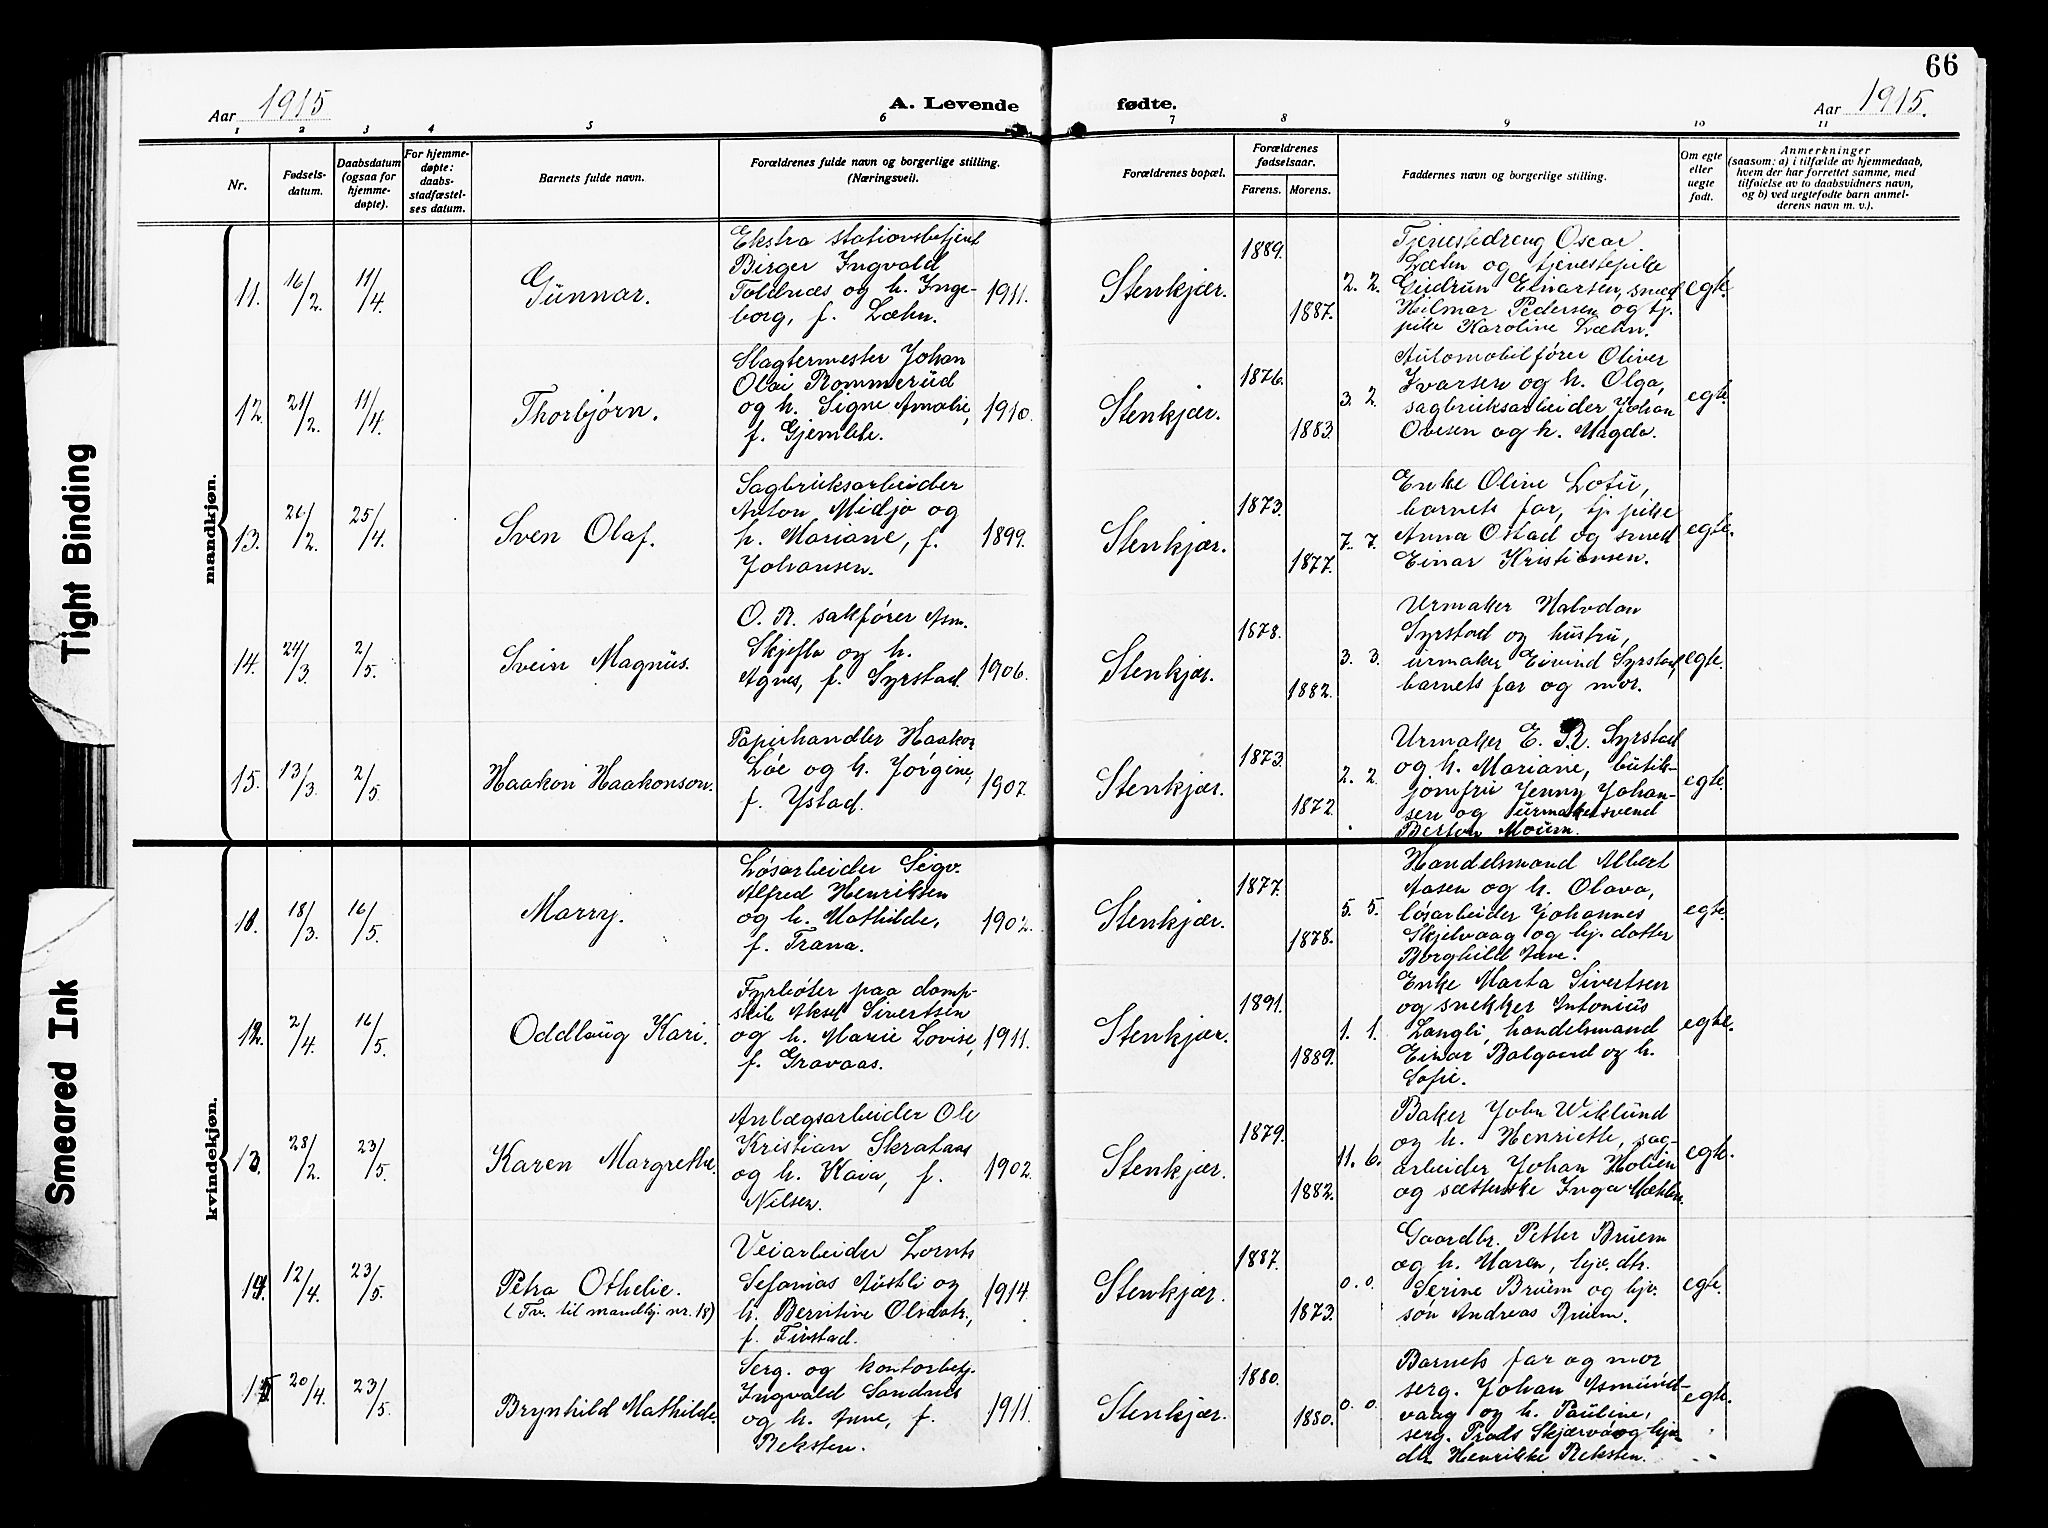 66
Aar 1915
A. Levende
fødte.
Aar 1915.
1 2 3 4 5 6 7 8 9 10 11
Nr.
Fødsels-
datum.
Daabsdatum
(ogsaa for
hjemme-
døpte).
For hjemme-
døpte:
daabs-
stadfæstel-
ses datum.
Barnets fulde navn.
Forældrenes fulde navn og borgerlige stilling.
(Næringsvei).
Forældrenes bopæl.
Forældrenes
fødselsaar.
Farens. Morens.
Faddernes navn og borgerlige stilling.
Om egte
eller
uegte
født.
Anmerkninger
(saasom: a) i tilfælde av hjemmedaab,
hvem der har forrettet samme, med
tilføielse av to daabsvidners navn,
og b) ved uegtefødte barn anmel-
derens navn m. v.).
mandkjøn.
11. 16/2. 11/4. Gunnar.
Ekstra stationsbetjent
Birger Ingvald
Toldnæs og h. Inge-
borg, f. Læhn.
1911. Stenkjær. 1889. 1887. 2. 2.
Tjenestedreng Oscar
Læhn og tjenestepike
Gudrun Einarsen, smed
Hilmar Pedersen og tj.
pike Karoline Læhn.
egte.
12. 21/2. 11/4. Thorbjørn.
Slagtermester Johan
Olai Rommerud
og h. Signe Amalie,
f. Gjemble.
1910. Stenkjær. 1876. 1883. 3. 2.
Automobilfører Oliver
Ivarsen og h. Olga,
sagbruksarbeider Johan
Ovesen og h. Magda.
egte.
13. 21/2. 25/4. Sven Olaf.
Sagbruksarbeider
Anton Midjo og
h. Mariane, f.
Johansen.
1899. Stenkjær. 1873. 1877. 7. 7.
Enke Oline Lofti,
barnets far, tj. pike
Anna Ostad og smed
Einar Kristiansen.
egte.
14. 24/3. 2/5. Svein Magnus.
O. R. sakfører Asm.
Skjefte og h.
Agnes, f. Syrstad.
1906. Stenkjær. 1878. 1882. 3. 3.
Urmaker Halvdan
Syrstad og hustru,
urmaker Eivind Syrstad,
barnets far og mor.
egte.
15. 13/3. 2/5. Haakon Haakonson.
Papirhandler Haakon
Løe og h. Jørgine,
f. Ystad.
1907. Stenkjær. 1873. 1872. 2. 2.
Urmaker E. R. Syrstad
og h. Mariane, butik-
jomfru Jenny Johan-
sen og urmakersvend
Berton Moum.
egte.
kvindekjøn.
11. 18/3. 16/5. Marry.
Løsarbeider Sigv.
Alfred Henriksen
og h. Mathilde,
f. Trana.
1902. Stenkjær. 1877. 1878. 5. 5.
Handelsmand Albert
Aasen og h. Olava,
løsarbeider Johannes
Skjelvaag og hj. datter
Borghild Aave.
egte.
12. 2/4. 16/5. Oddlaug Kari.
Fyrbøter paa damp-
skib Aksel Sivertsen
og h. Marie Lovise,
f. Gravaas.
1911. Stenkjær. 1891. 1889. 1. 1.
Enke Marta Sivertsen
og snekker Antonius
Langli, handelsmand
Einar Balgaard og h.
Sofie.
egte.
13. 28/2. 23/5. Karen Margrethe.
Anlægsarbeider Ole
Kristian Skrataas
og h. Kaia, f.
Nilsen.
1902. Stenkjær. 1879. 1882. 11. 6.
Baker John Wiklund
og h. Henriette, sag-
arbeider Johan Holien
og sætterske Inga Mæhla.
egte.
14. 12/4. 23/5. Petra Othelie.
(Tv. til mandkj. nr. 18)
Veiarbeider Lornts
Sefanias Austli og
h. Berntine Olsdatr.,
f. Finstad.
1914. Stenkjær. 1887. 1873. 0. 0.
Gaardbr. Petter Bruem
og h. Maren, hjv. dtr.
Serine Bruem og hjv.
søn Andreas Bruem.
egte.
15 20/4. 23/5. Brynhild Mathilde.
Serg. og kontorbetj.
Ingvald Sandnes
og h. Anne, f.
Reksten.
1911. Stenkjær. 1880. 1880. 0. 0.
Barnets far og mor,
serg. Johan Asmund-
vaag og h. Pauline,
serg. Skjærvø og hjv.
dtr. Henrikke Reksten.
egte.
Tight Binding
Smeared Ink